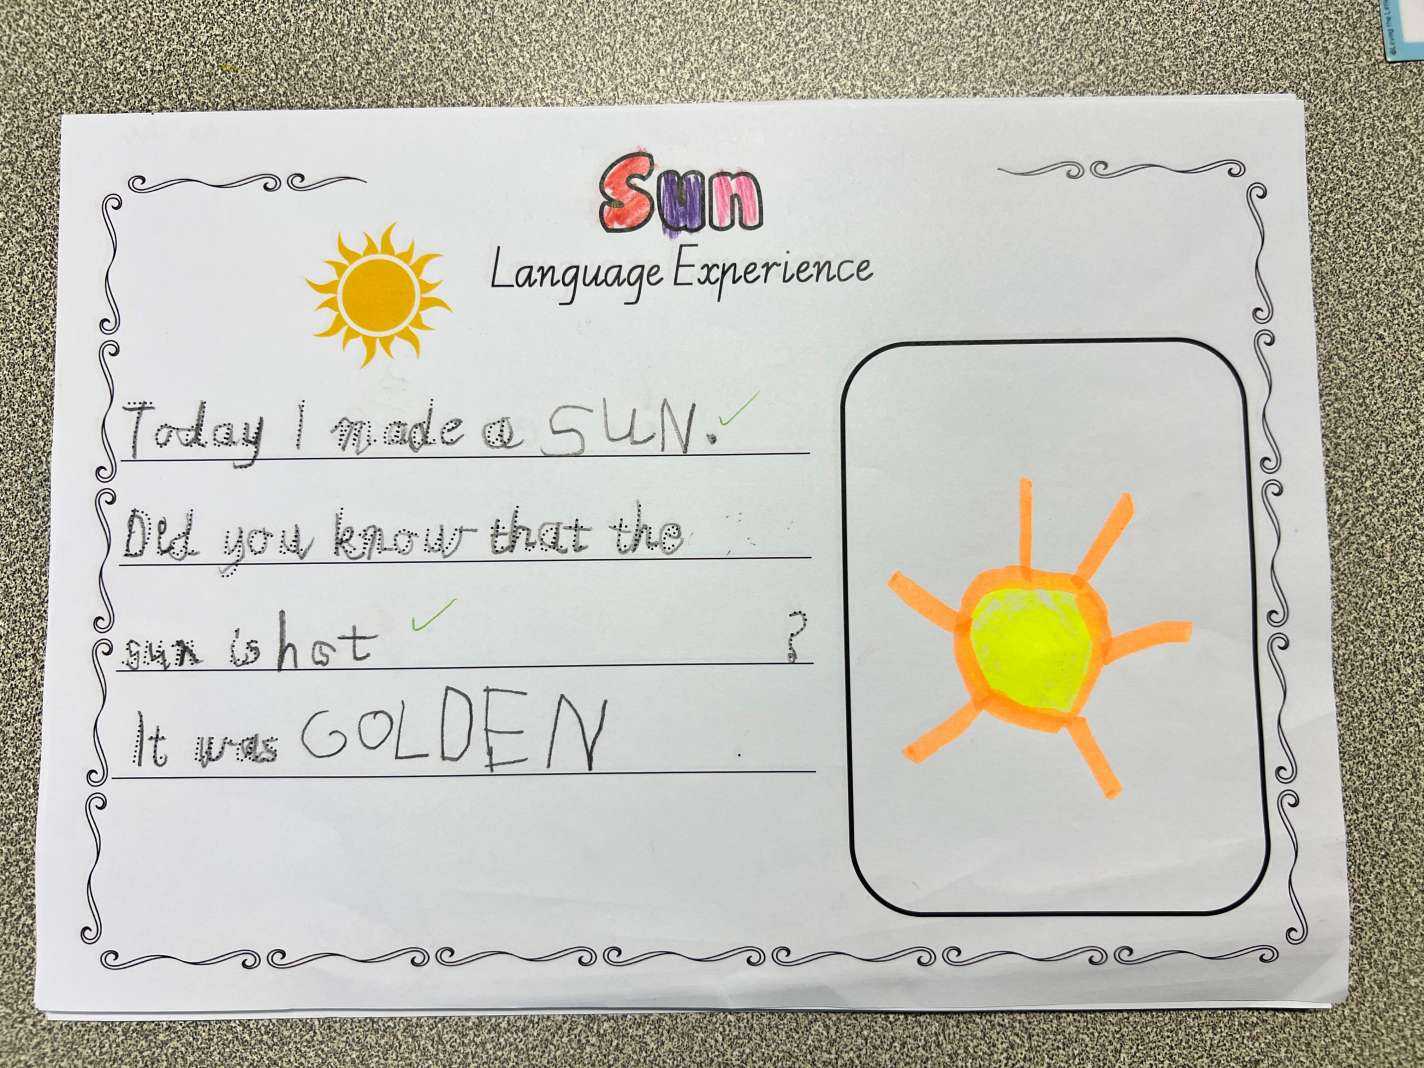 Sun
Language Experience
Today I made a SUN.
Did you know that the
sun is hot ?
It was GOLDEN .